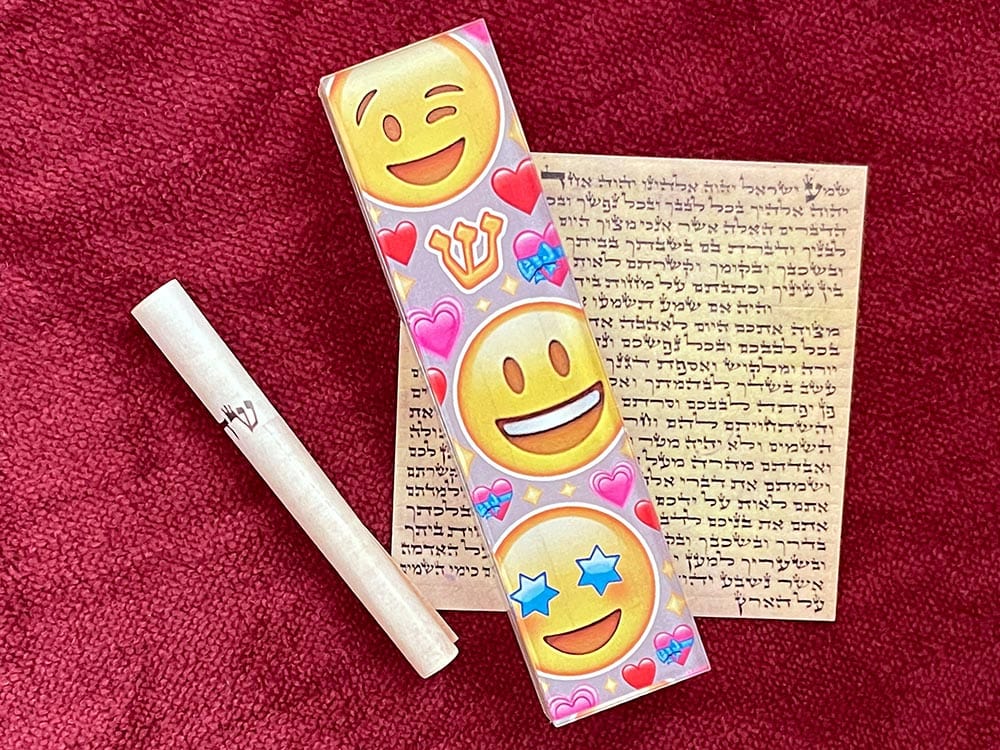 ש
ש
שמע ישראל יהוה אלהינו יהוה אחד
יהוה אלהיך בכל לבבך ובכל נפשך
הדברים האלה אשר אנכי מצוך היום
לבניך ודברת בם בשבתך בביתך
ובשכבך ובקומך וקשרתם לאות
בין עיניך וכתבתם על מזזות
והיה אם שמע תשמעו
מצוה אתכם היום לאהבה
בכל לבבכם ובכל נפשכם
יורה ומלקוש ואספת דגנך
עשב בשדך לבהמתך
פן יפתה לבבכם וסרתם
והשתחויתם להם את
השמים ולא יהיה מטר
ואבדתם מהרה מעל
ושמתם את דברי וקשרתם
אתם לאות על ידכם ולמדתם
אתם את בניכם בלכתך
בדרך ובשכבך
ובשעריך למען על האדמה
אשר נשבע כימי השמים
על הארץ